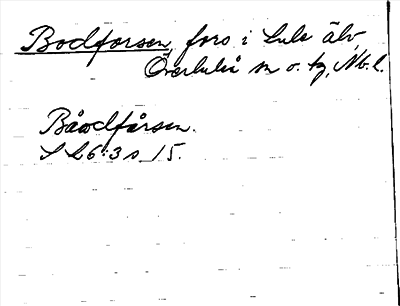 Bodforsen, fors i Lule älv,
Överluleå sn o. tg, Nb. l.
Båodfårsen.
S L 6:3 s 15.